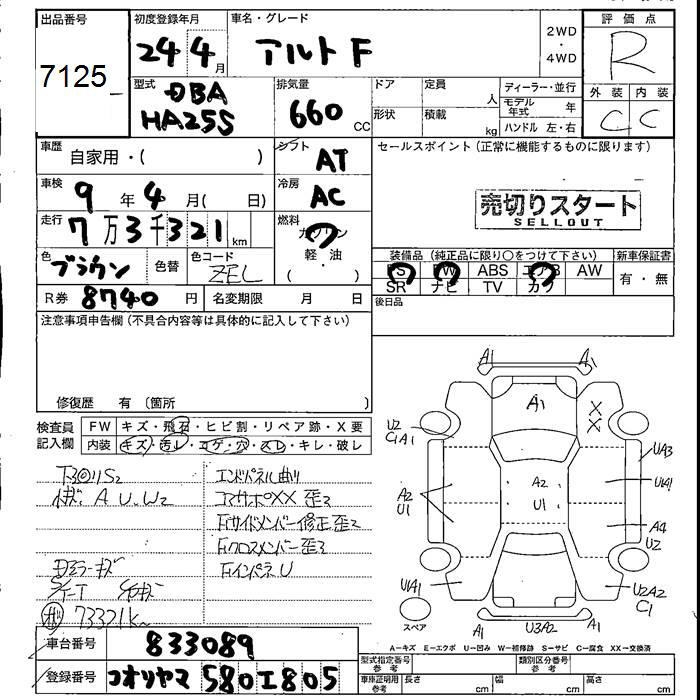 出品番号 初度登録年月 車名・グレード 評価点
7125 24 4月 アルト F 2WD・4WD R
型式 排気量 ドア 定員 人 ディーラー・並行 外装 内装
DBA 660 CC 形状 積載 kg モデル年式 年 C C
HA25S ハンドル 左・右
車歴 自家用・( ) シフト AT セールスポイント(正常に機能するものに限ります)
車検 9年 4月( 日) 冷房 AC
売切りスタート
SELLOUT
走行 7万3千321km 燃料 ガソリン
軽・油
( )
色 ブラウン 色替 色コード ZEL
装備品(純正品に限り○をつけて下さい) 新車保証書
PS PW ABS エアB AW 有・無
SR ナビ TV カワ
R券 8740円 名変期限 月 日 後日品
注意事項申告欄(不具合内容等は具体的に記入して下さい)
修復歴 有(箇所 )
検査員記入欄 FW キズ・飛石・ヒビ割・リペア跡・X要
内装 キズ・汚レ・コゲ・穴・スレ・キレ・破レ
エンドパネル曲り
A U.W2 コアサポXX 歪2
Fサイドメンバー修正歪2
Fクロスメンバー歪2
Fインパネ U
73321K
A1 A1
A1
X
X
U2
A1
UA3
A2
U1
A2
U1
U1A1
A4
U2
U1A1
U2A2
C1
スペア
A1 U3A2 A1
A-キズ E-エクボ U-凹み W-補修跡 S-サビ C-腐食 XX-交換済
車台番号 833089
型式指定番号 参考 類別区分番号 参考
登録番号 コオリヤマ 580 エ 805
車庫証明用 参考 長さ cm 幅 cm 高さ cm